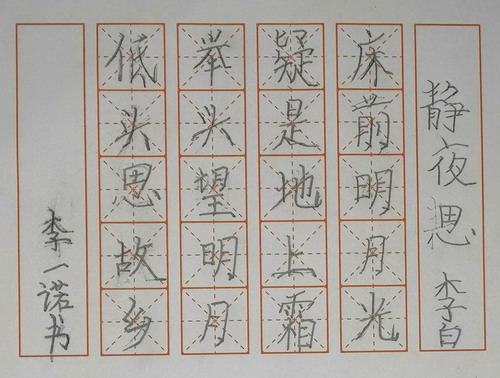 静夜思 李白
床前明月光
疑是地上霜
举头望明月
低头思故乡
李一诺书